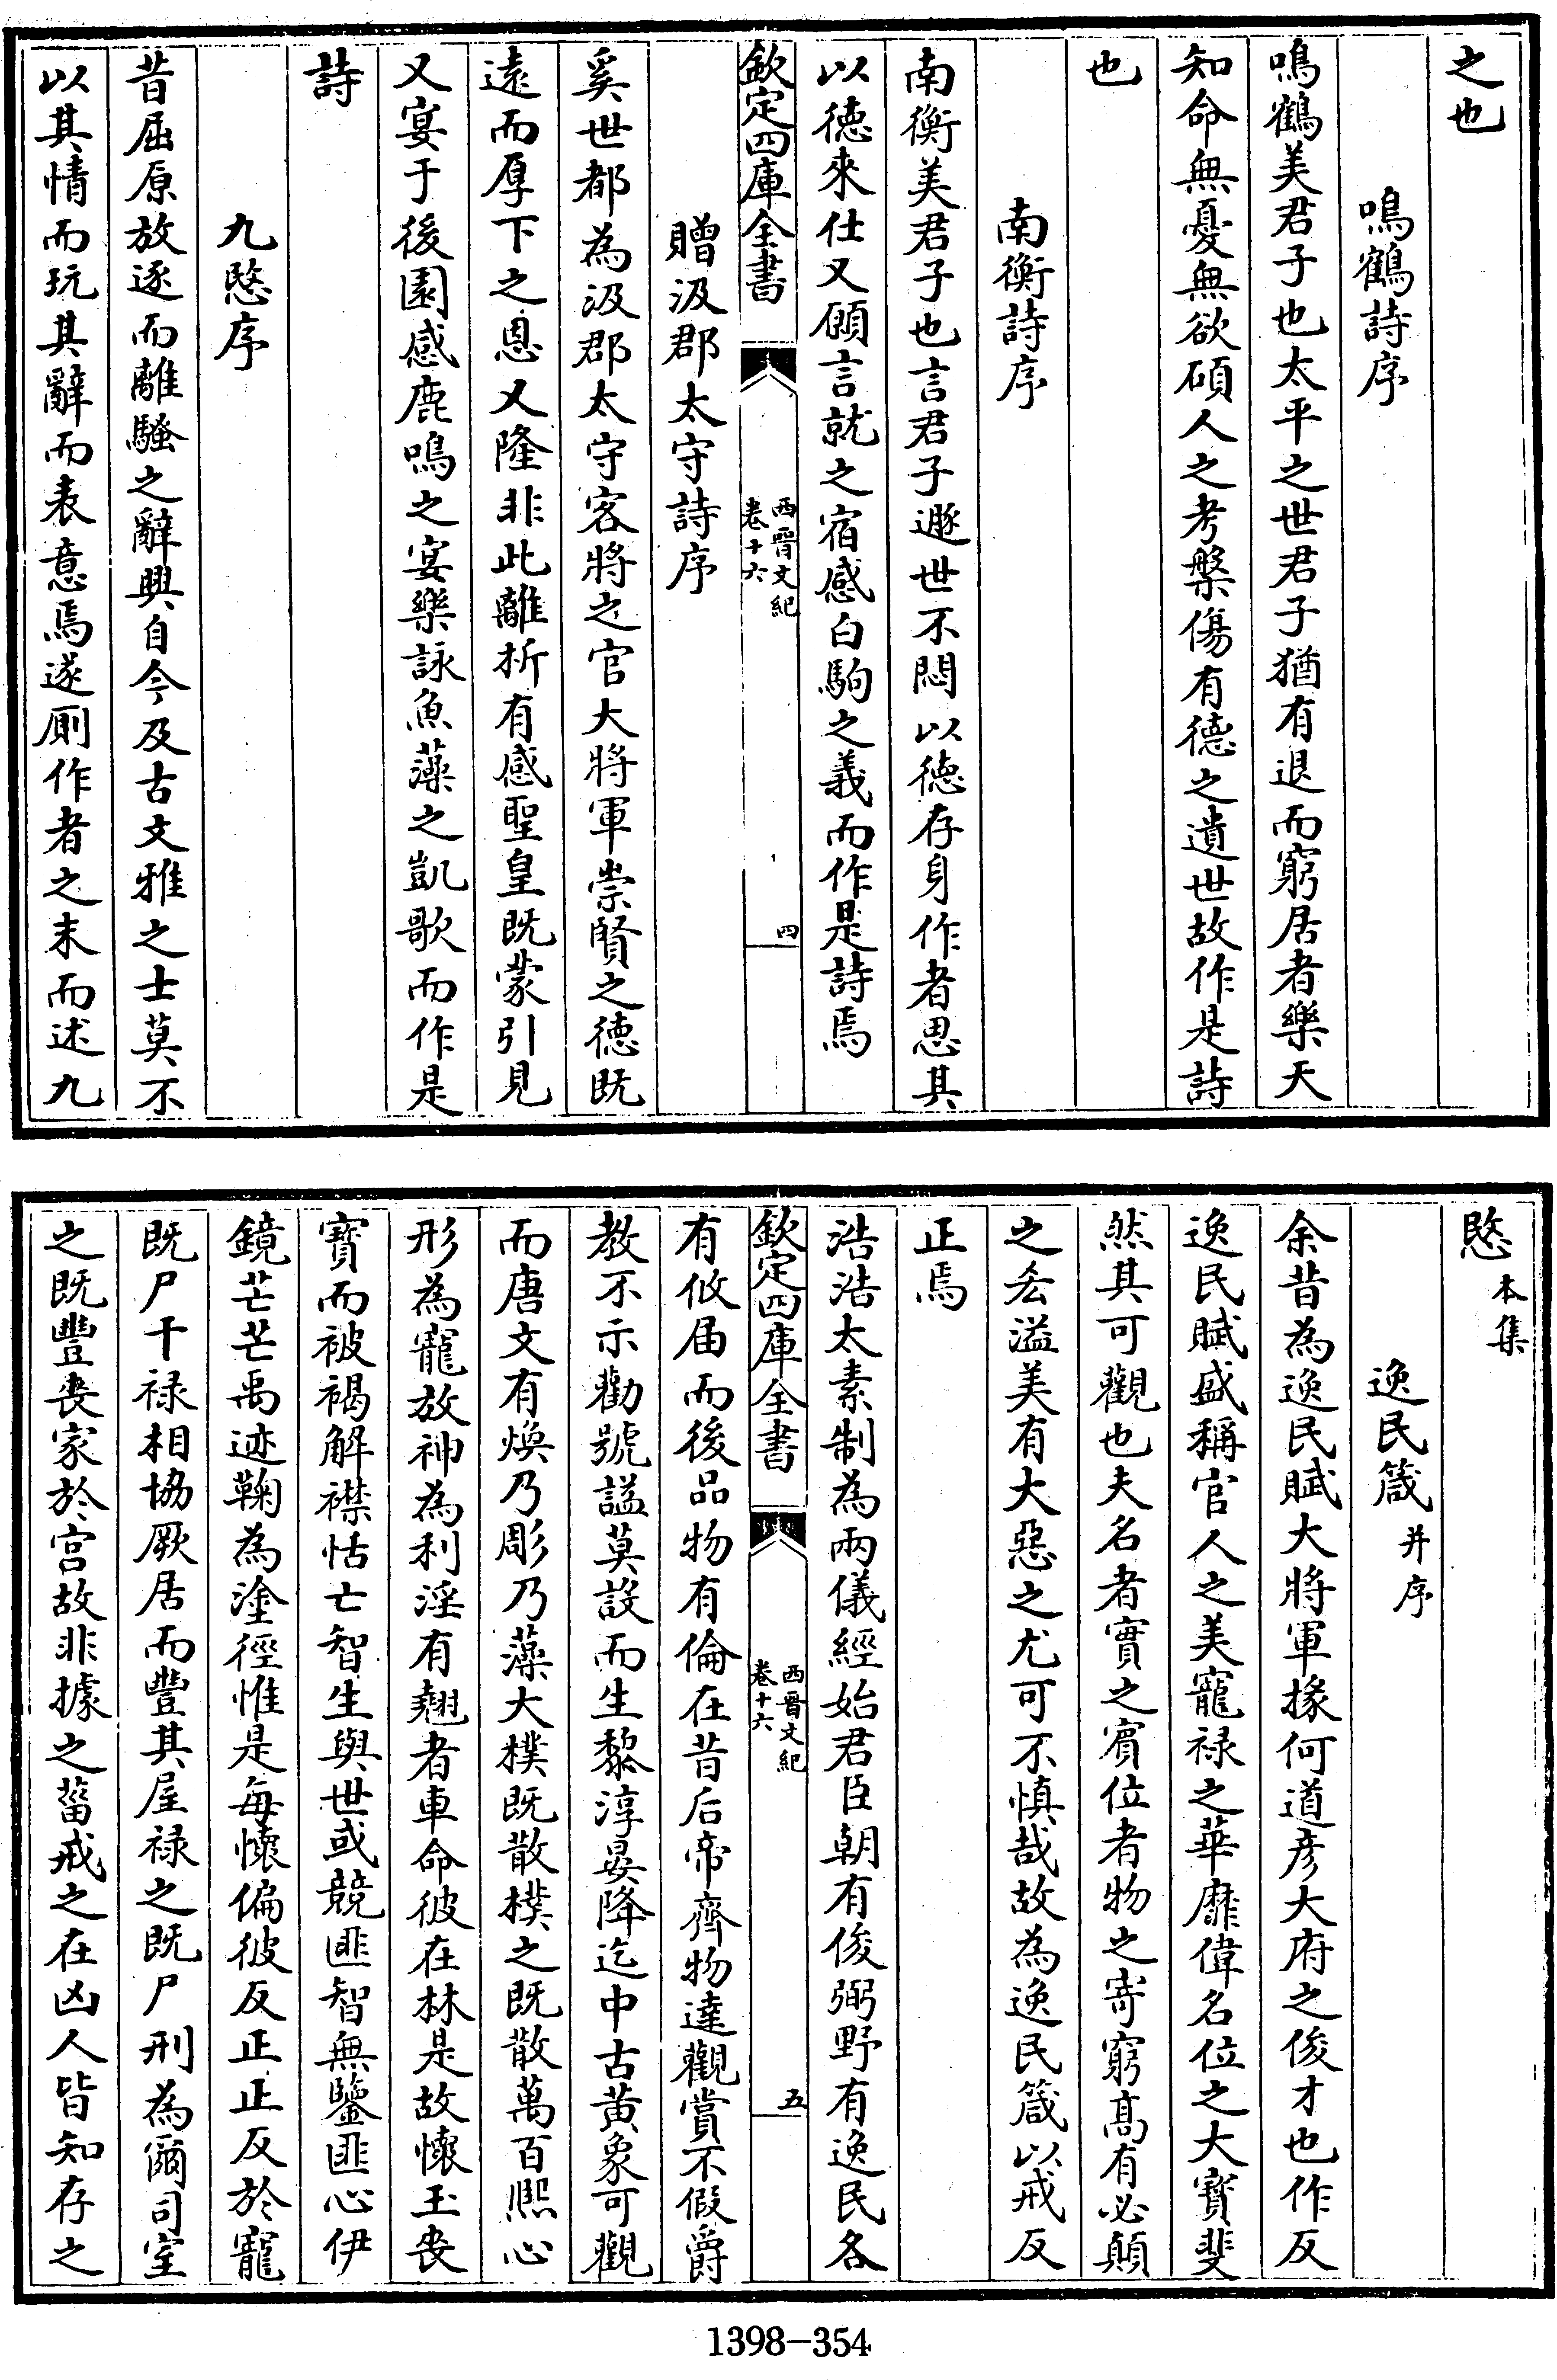 之也
鳴鶴詩序
鳴鶴美君子也太平之世君子猶有退而窮居者樂天
知命無憂無欲碩人之考槃傷有德之遺世故作是詩
也
南衡詩序
南衡美君子也言君子遯世不悶以徳存身作者思其
以徳來仕又願言就之宿感白駒之義而作是詩焉
欽定四庫全書
西晉文紀
卷十六
四
贈汲郡太守詩序
奚世都為汲郡太守客將之官大將軍崇賢之徳既
遠而厚下之恩又隆非此離析有感聖皇既蒙引見
又宴于後園感鹿鳴之宴樂詠魚藻之凱歌而作是
詩
九愍序
昔屈原放逐而離騷之辭興自今及古文雅之士莫不
以其情而玩其辭而表意焉遂廁作者之末而述九
愍本集
逸民箴并序
余昔為逸民賦大將軍掾何道彦大府之俊才也作反
逸民賦盛稱官人之美寵禄之華靡偉名位之大寳斐
然其可觀也夫名者實之賓位者物之寄窮髙有必顛
之吝溢美有大惡之尤可不慎哉故為逸民箴以戒反
正焉
浩浩太素制為兩儀經始君臣朝有俊弼野有逸民各
欽定四庫全書
西晉文紀
卷十六
五
有攸届而後品物有倫在昔后帝齊物達觀賞不假爵
教不示勸號謚莫設而生黎淳晏降迄中古黄象可觀
而唐文有煥乃彫乃藻大樸既散樸之既散萬百熈心
形為寵放神為利淫有翹者車命彼在林是故懷玉喪
寳而被褐解襟恬亡智生與世或競匪智無鑒匪心伊
鏡芒芒禹迹鞠為塗徑惟是每懷偏彼反正正反於寵
既尸干禄相協厥居而豐其屋禄之既尸刑為爾司室
之既豐喪家於宫故非據之菑戒之在凶人皆知存之
1398-354